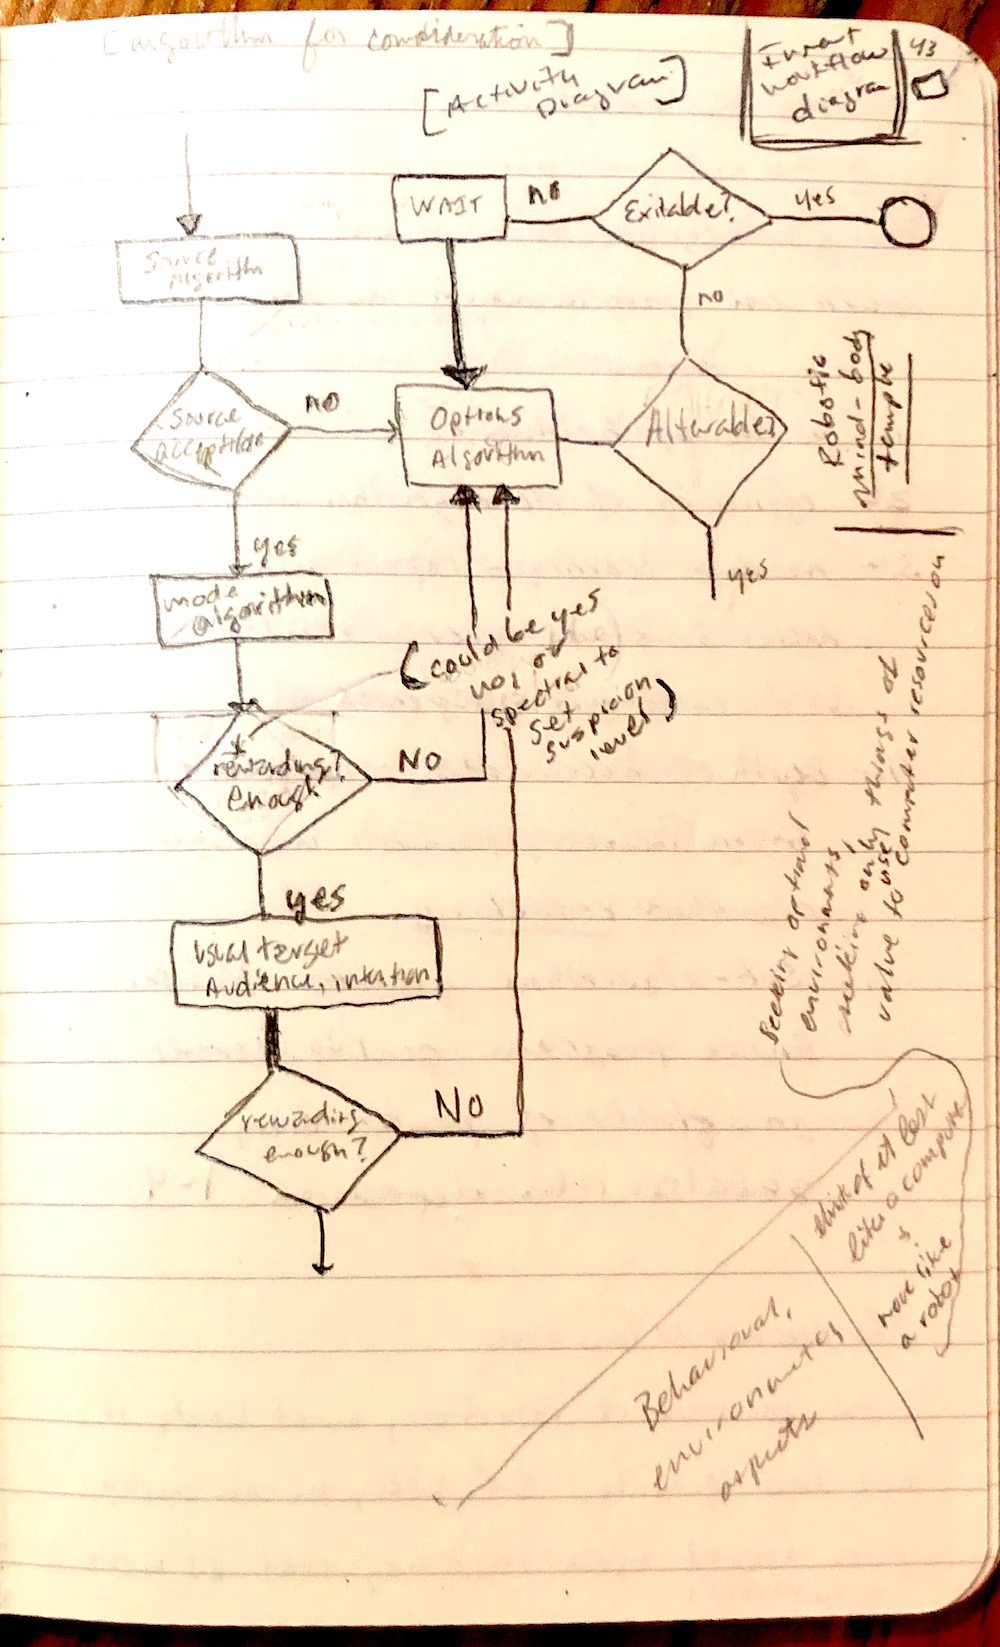 [algorithm for consideration]
[Activity
Diagram]
workflow
diagram
43
WAIT
no
Exitable?
yes
Source
Algorithm
no
Source
acception
no
Options
Algorithm
Alterable?
Robotic
mind-body
template
yes
yes
mode
algorithm
(could be yes
no, or
spectral to
set
suspicion
level)
*
rewarding?
Enough
No
yes
usual target
Audience, intention
rewarding
enough?
No
Seeking optimal
environments,
seeking only things of
value to user,
computer resources on
think of it last
like a computer
+
more like
a robot
Behavioral,
environmental
aspects